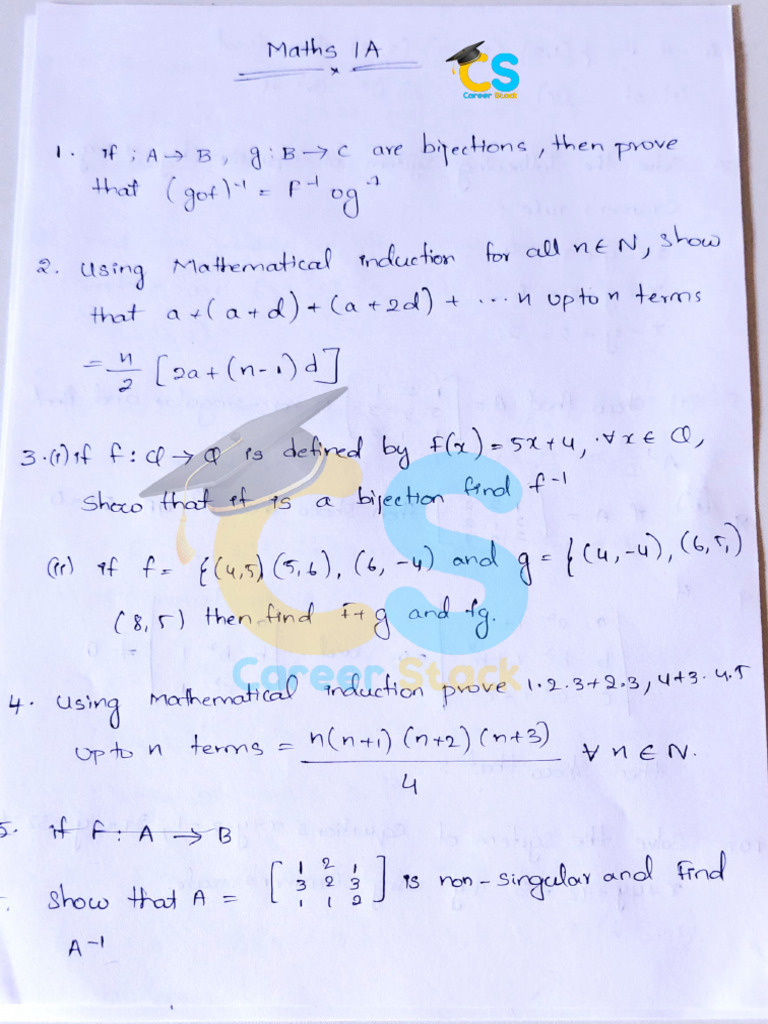 Maths 1A
CS
Career Stack
1. if ; A → B, g : B → C are bijections, then prove
that (gof)⁻¹ = f⁻¹ og⁻¹
2. Using Mathematical induction for all n ∈ N, show
that a + (a + d) + (a + 2d) + ... n upto n terms
= n/2 [2a + (n-1) d]
3. (i) if f : Q → Q is defined by f(x) = 5x + 4, ∀ x ∈ Q,
show that if is a bijection find f⁻¹
(ii) if f = {(4,5) (5,6), (6, -4) and g = {(4, -4), (6,5,)
(8,5) then find f+g and fg.
CS
Career Stack
4. Using Mathematical induction prove 1.2.3 + 2.3, 4+3. 4.5
upto n terms = n(n+1) (n+2) (n+3) / 4 ∀ n ∈ N.
5. if f : A → B
show that A = [1 2 1; 3 2 3; 1 1 2] is non-singular and find
A⁻¹